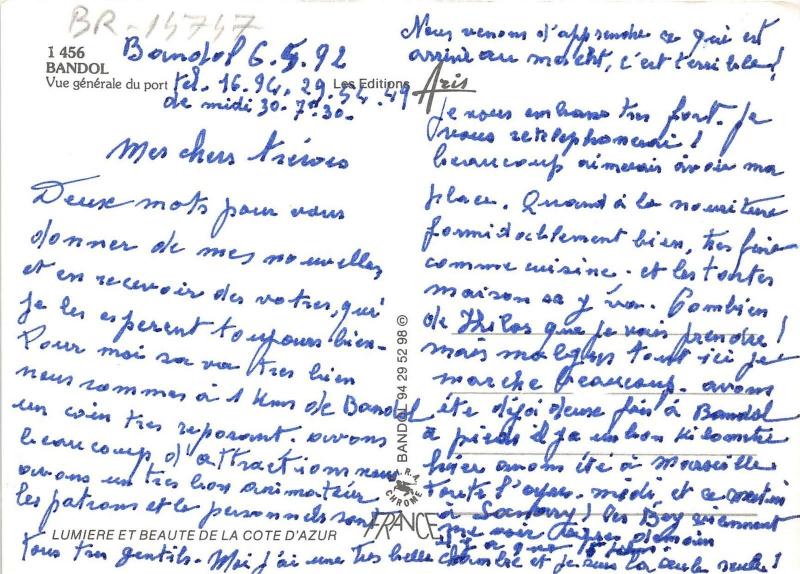 BR-15757
1 456
BANDOL
Vue générale du port
Les Editions Aris
Bandol 6.5.92
tel. 16.94.29.54.49
de midi 30. 7h30.
Mes chers trésors
Deux mots pour vous
donner de mes nouvelles
et en recevoir des votres, qui
je les esperent toujours bien-
Pour moi sa va tres bien
nous sommes à 1 km de Bandol
un coin tres reposant. avons
beaucoup d'attractions nous
avons un tres bon animateur
les patrons et le personnels sont
tous tres gentils. Moi j'ai une tres belle chambre et je suis la seule seule!
Nous venons d'apprendre ce qui est
arrivé au match, c'est terrible!
Je vous embrasse tres fort. Je
vous retelephonerai!
beaucoup aimerais avoir ma
place. Quand à la nouriture
formidablement bien, tres fine
comme cuisine. et les tartes
maison sa y va. Combien
de Kilos que je vais prendre!
mais malgres tout ici je
marche beaucoup. avons
été déjà deux fois à Bandol
a pieds il y a un bon kilometre
hier avons été à Marseille
toute l'apres-midi, et ce matin
à Sanary! les Bey viennent
me voir apres demain
il y a que 15 kms!
BANDOL 94 29 52 98 ©
A.R.A
CHROME
FRANCE
LUMIERE ET BEAUTE DE LA COTE D'AZUR